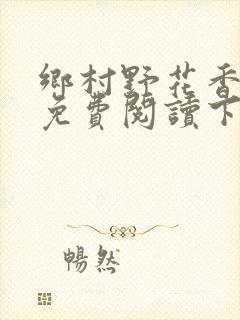 鄉村野花香
免費閱讀下
暢然